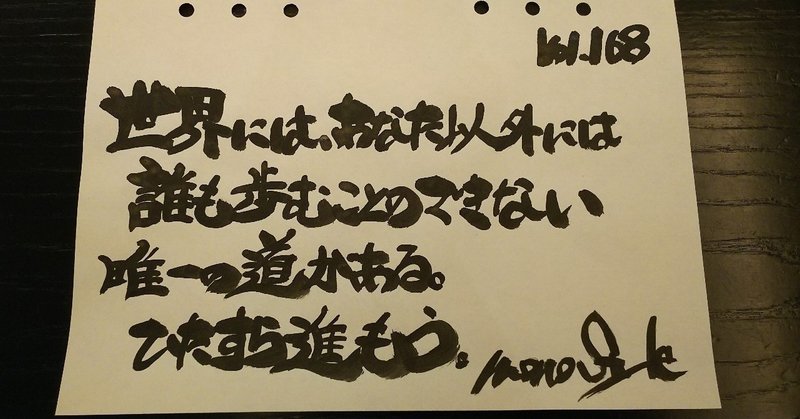 Vol.168
世界には、あなた以外には
誰も歩むことのできない
唯一の道がある。
ひたすら進もう。